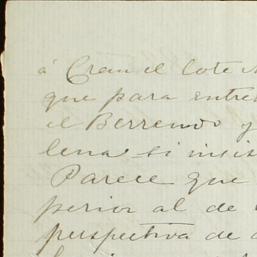 á Crau el lote
que para entre
el Berrendo y
lena si insis
Parece que
perior al de
perspectiva de